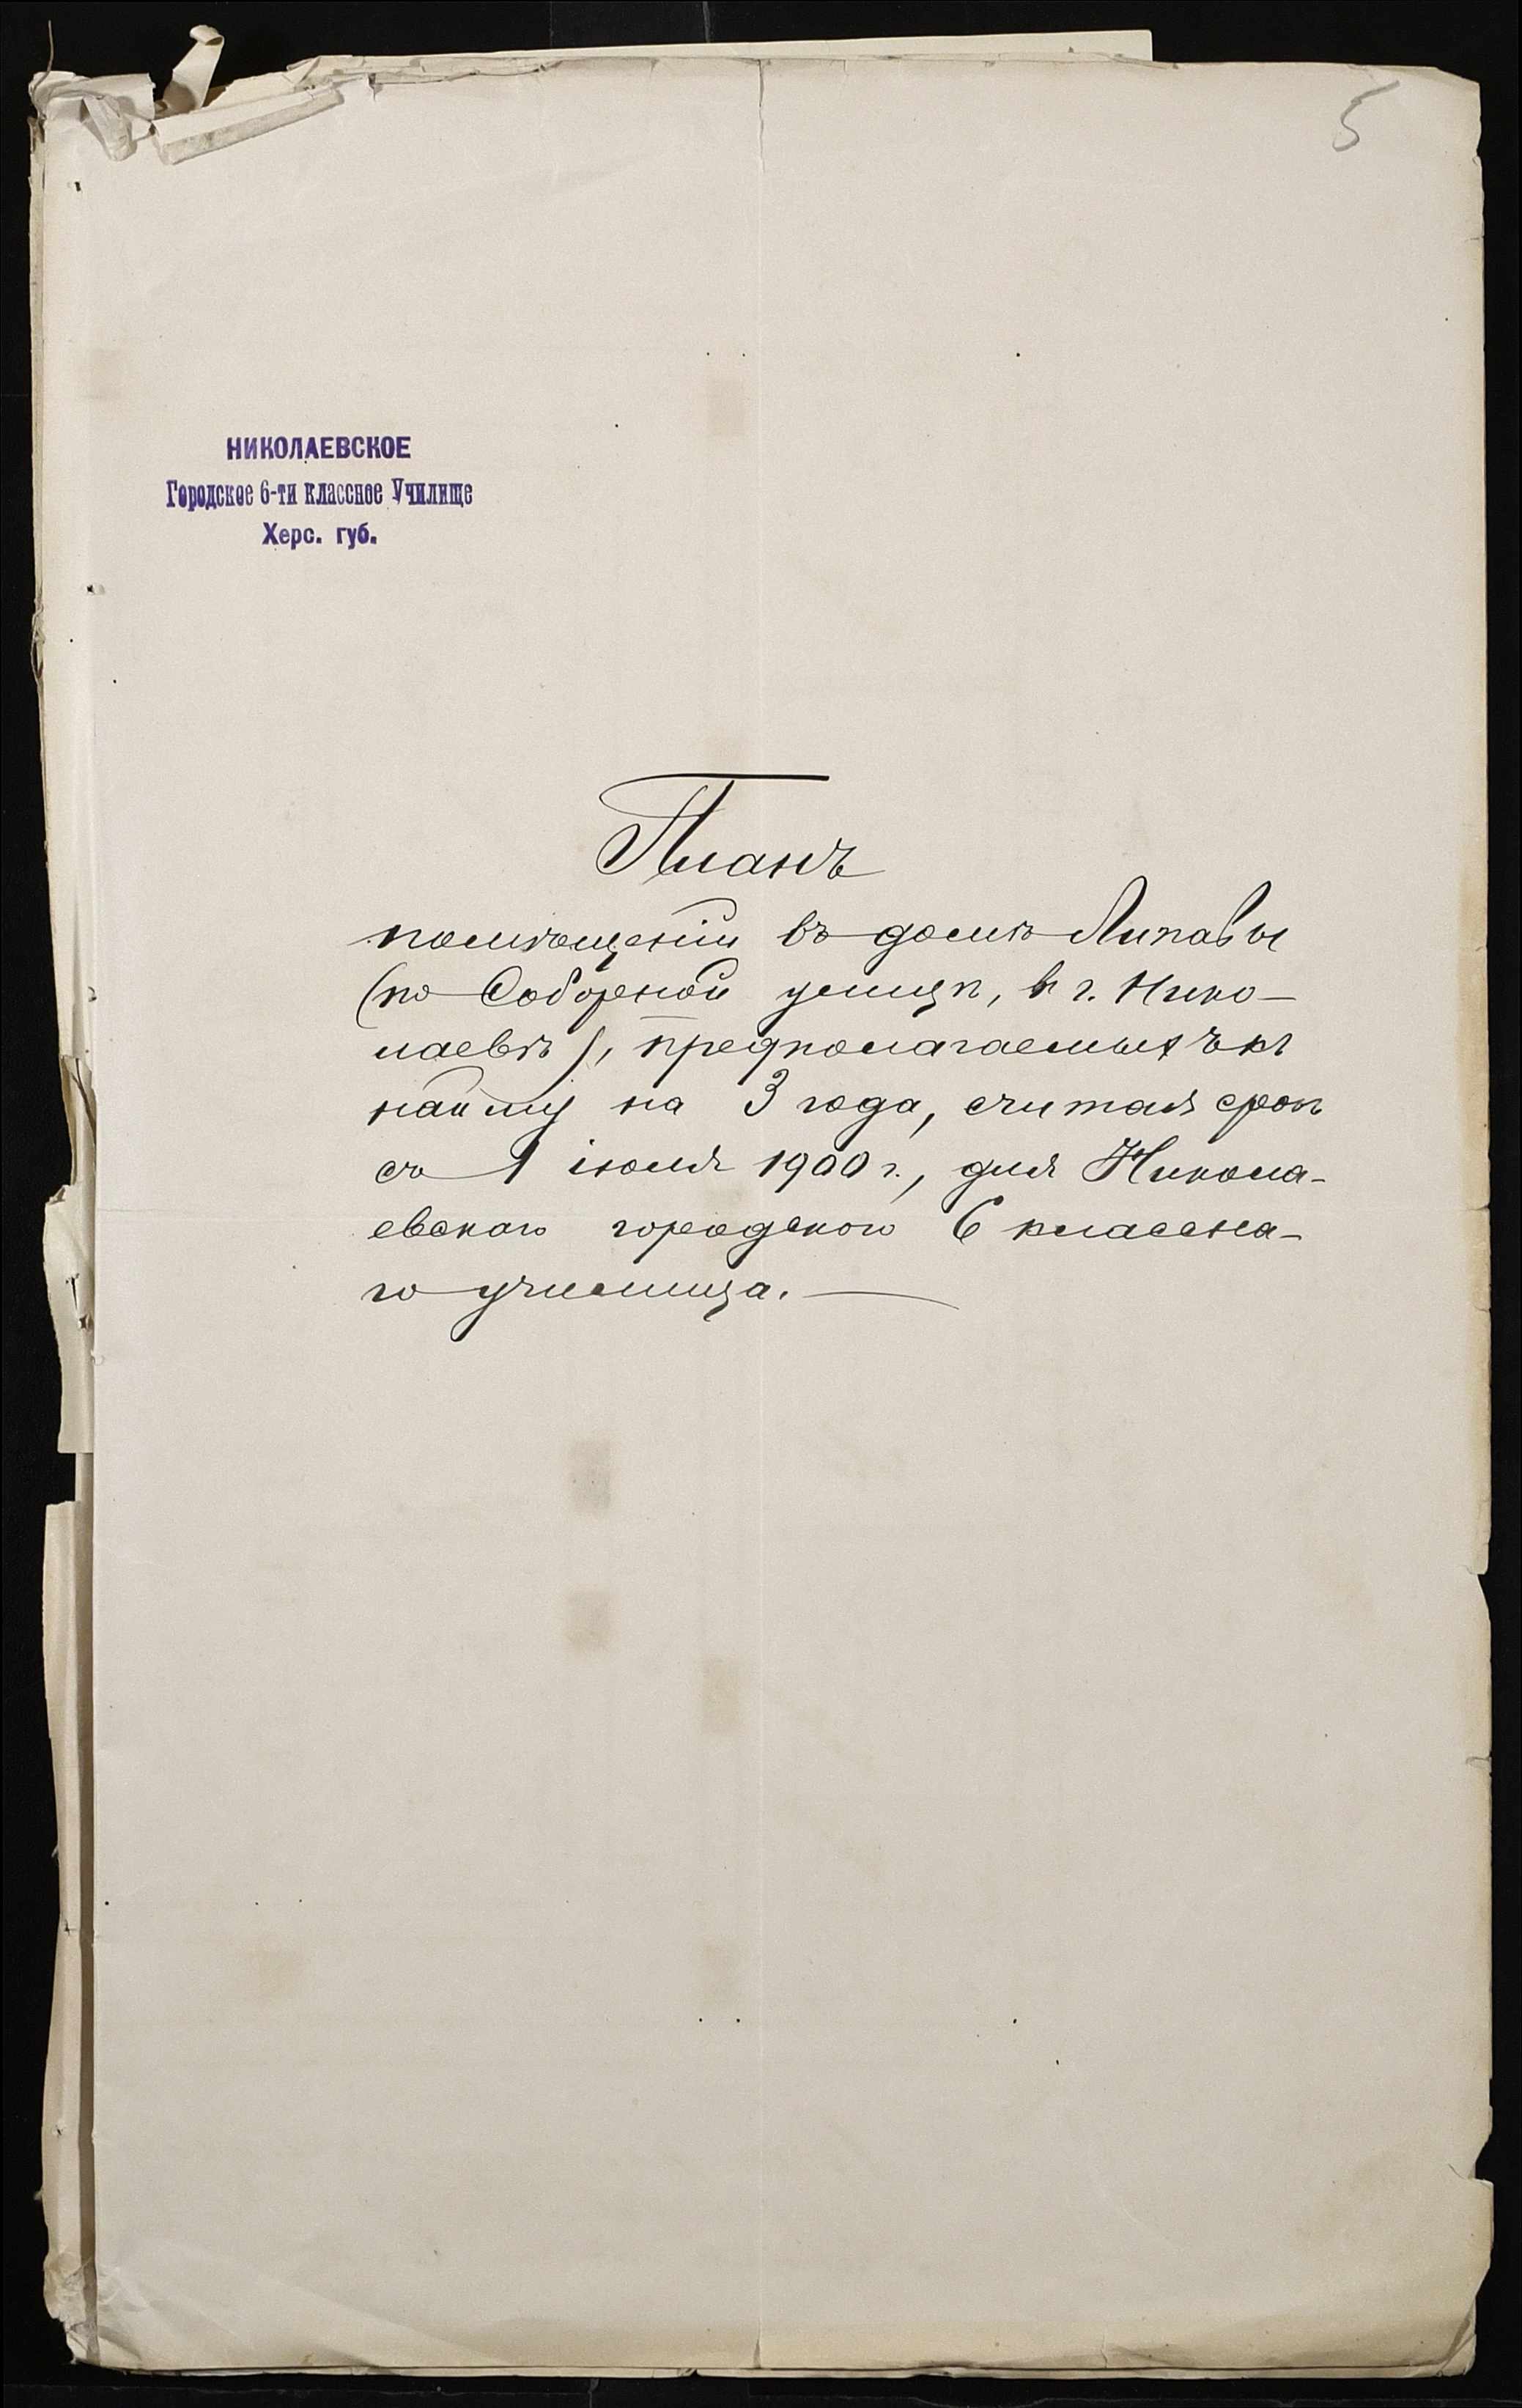 5
НИКОЛАЕВСКОЕ
Городское 6-ти классное Училище
Херс. губ.
Планъ
помѣщеній въ домѣ Липавы
(по Соборной улицѣ, въ г. Нико-
лаевѣ), предполагаемыхъ къ
найму на 3 года, считая срокъ
съ 1 іюля 1900 г., для Никола-
евскаго городского 6 класснa-
го училища.